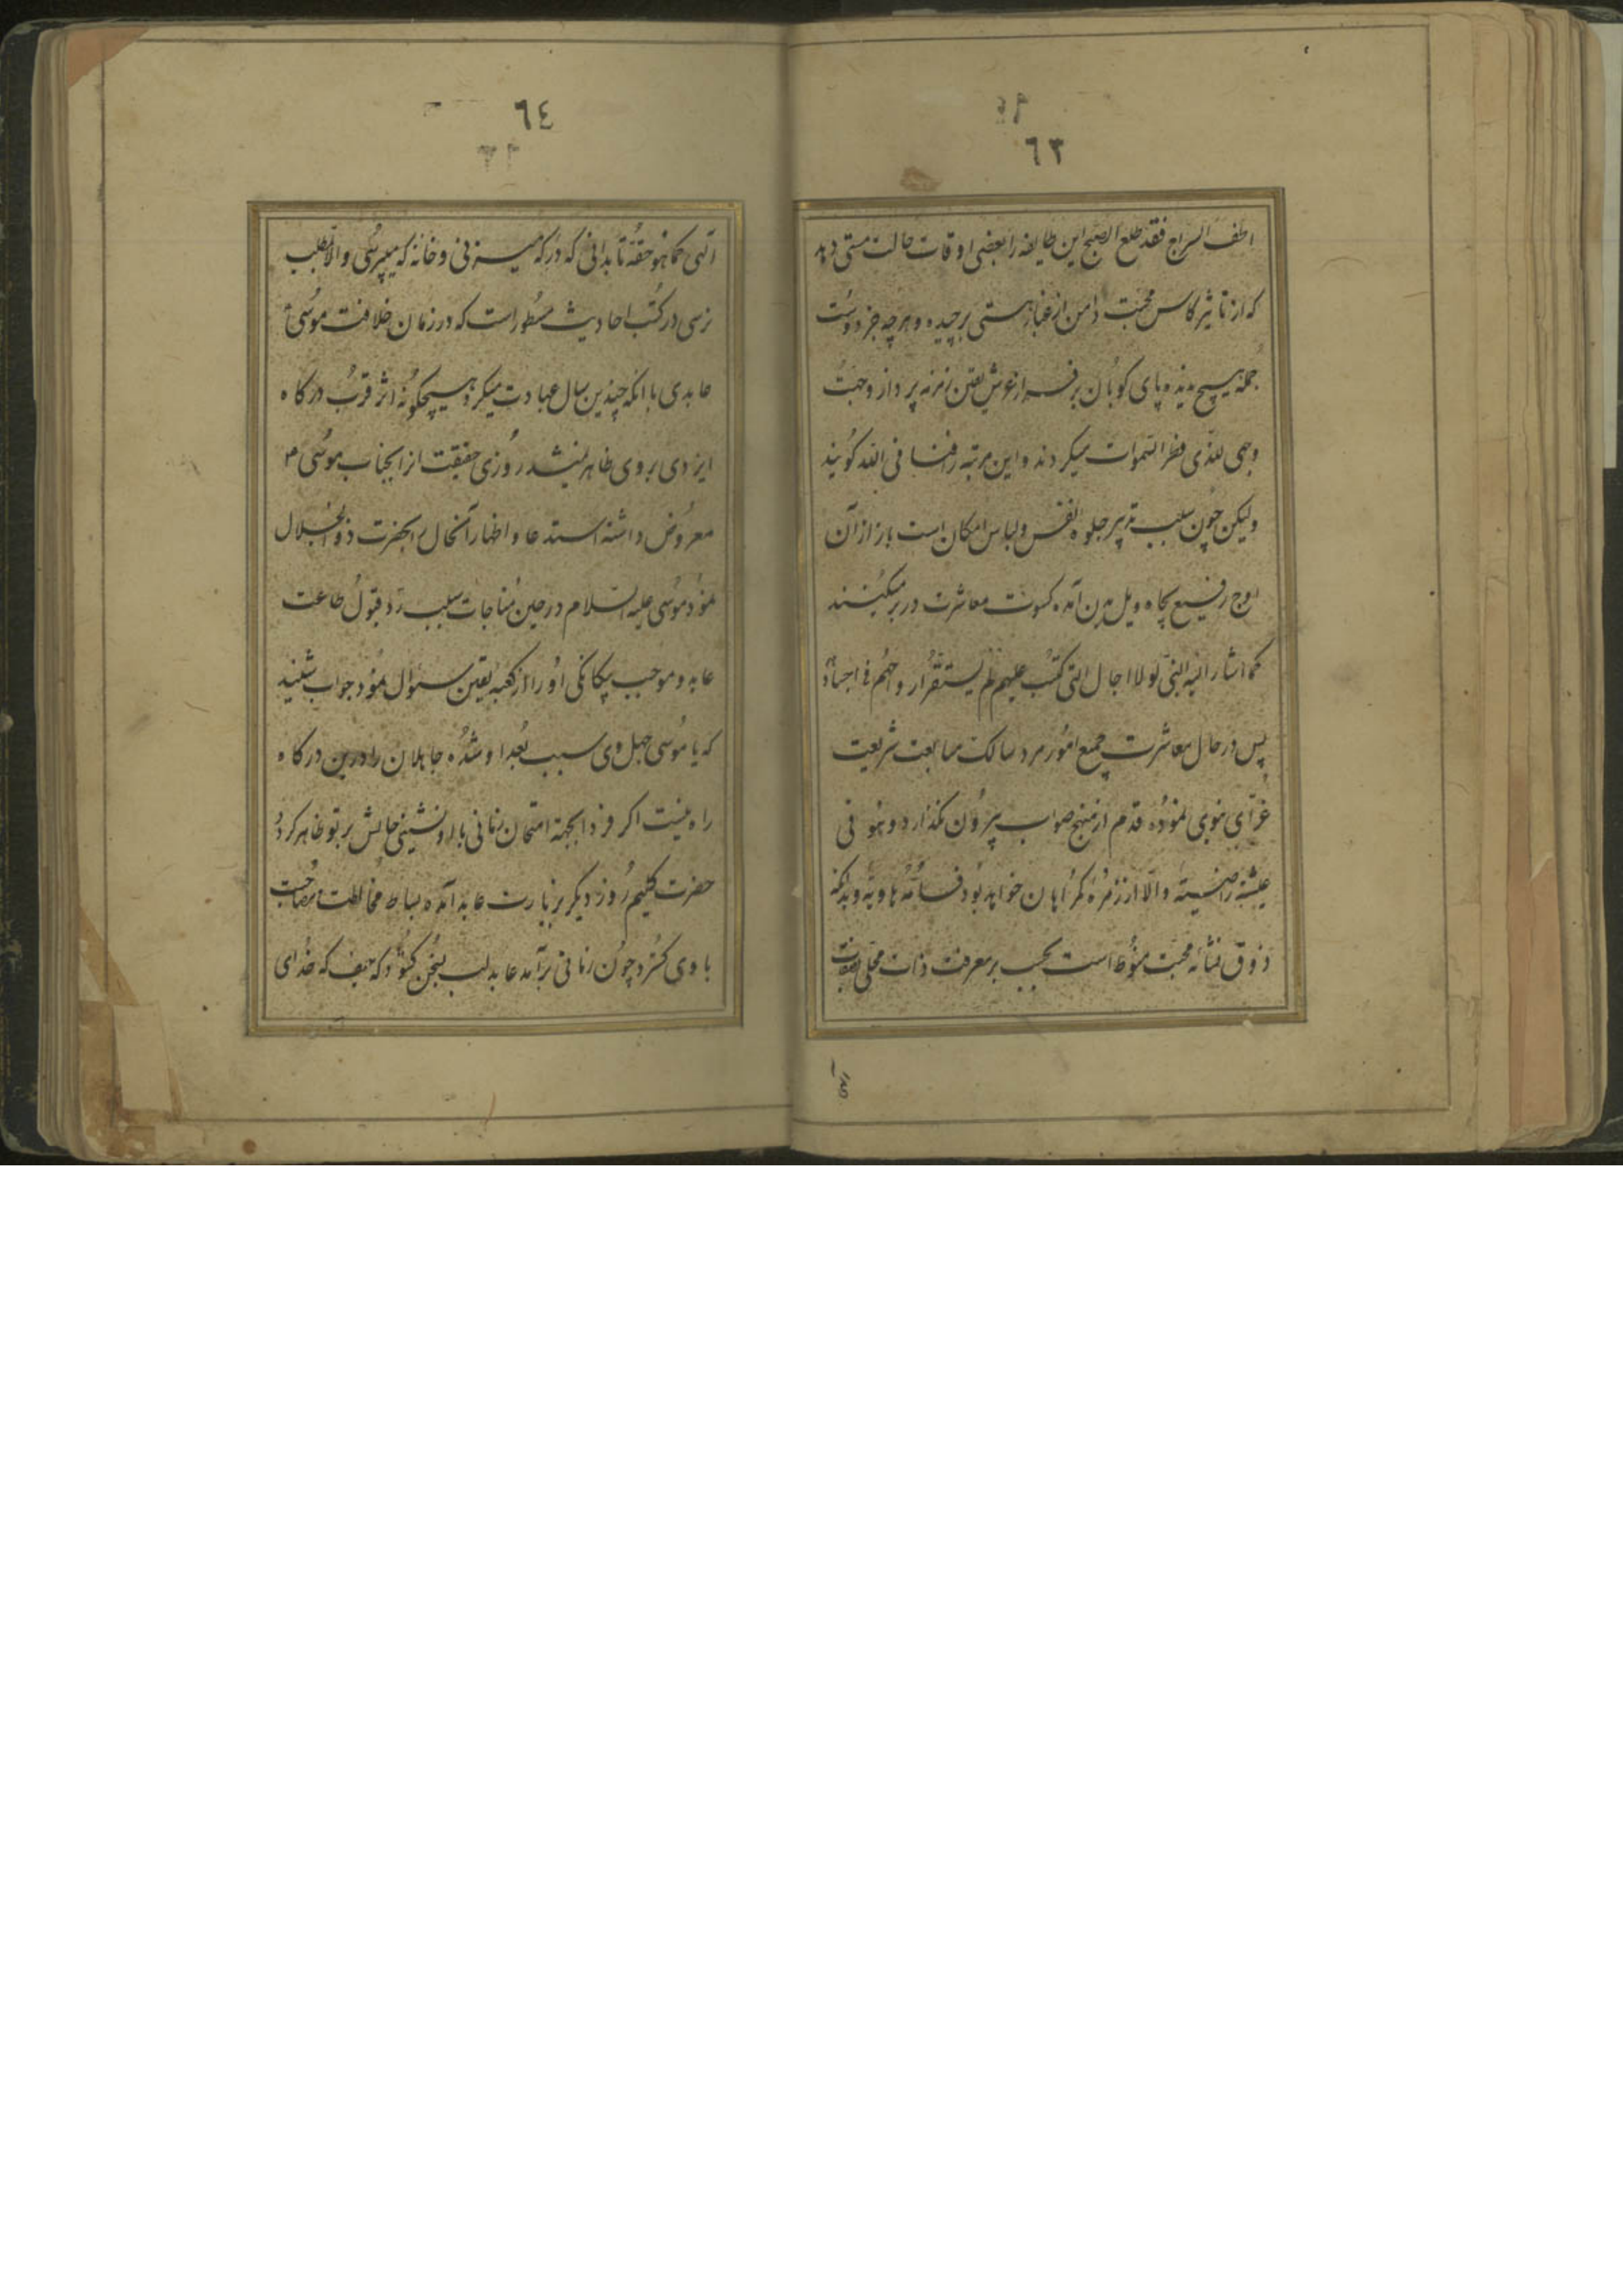 ٦٣
اطف السراج فقد طلع الصبح این طایفه را بعضی اوقات حالت مستی دهد
که از تاثیر کاس محبت دامن از غبار هستی برچیده و هرچه جز دوست
جمله هیچ دیده پای کوبان بر فراز عرش یقین زمزمه پرداز وجهت
وجهی للذی فطر السموات میکردند و این مرتبه را فنا فی الله کویند
ولیکن چون سلب تدبیر جلوه نفس و لباس امکان است باز از آن
اوج رفیع بچاه ویل بدن آمده کسوت معاشرت در بر میکنند
کما اشار الیه النبی لولا اجال التی کتب علیهم لم یستقر ارواحهم فی اجسادهم
پس در حال معاشرت جمیع امور مرد سالک متابعت شریعت
غرّای نبوی نموده قدم از منهج صواب بیرون نکذارد و هو فی
عیشة راضیة والّا از زمره کمراهان خواهد بود فامّه هاویه و بدانکه
ذوق نشأه محبت منوط است بحسب بر معرفت ذات محلی بصفات
الهی
٦٤
الهی کما هو حقّه تا بدانی که در که میزنی و خانه که میپرسی و الا بمطلب
نرسی در کتب احادیث مسطور است که در زمان خلافت موسی
عابدی با انکه چندین سال عبادت میکرد هیچکونه اثر قرب درکاه
ایزدی بر وی ظاهر نمیشد روزی حقیقت از انجناب موسی
معروض داشته استدعا و اظهار آنحال بحضرت ذو الجلال
نمود موسی علیه السلام در حین مناجات سلب ردّ قبول طاعت
عابد و موجب بیکانکی او را از کعبه یقین سئوال نمود جواب شنید
که یا موسی جهل وی سبب بُعد او شده جاهلان را درین درکاه
راه نیست اکر فردا بجهة امتحان زمانی با او نشینی حالش بر تو ظاهر کردد
حضرت کلیم روز دیکر بزیارت عابد آمده بساط مخالطت و مصاحبت
با وی کسترد چون زمانی برآمد عابد لب بسخن کشود که حیف که خدای